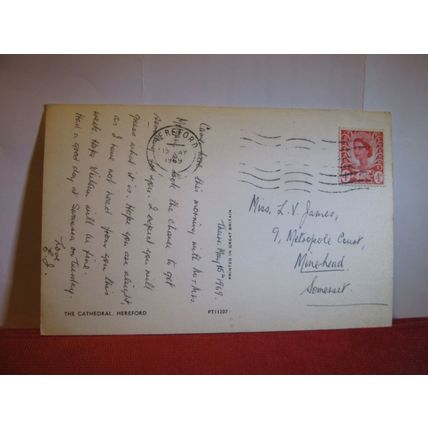 Thurs. May 15th 1969.
Came here this morning with Mr & Mrs.
took the chance to get
for you. I expect you will
guess what it is. Hope you are alright,
as I have not heard from you this
week. Hope Vivian will be fine.
Had a good day at Swansea on Tuesday.
Love
E.J.
THE CATHEDRAL, HEREFORD
PT11207
PRINTED IN GREAT BRITAIN
HEREFORD
15 MY
1969
Miss. L. V. James,
9, Metropole Court,
Minehead
Somerset.